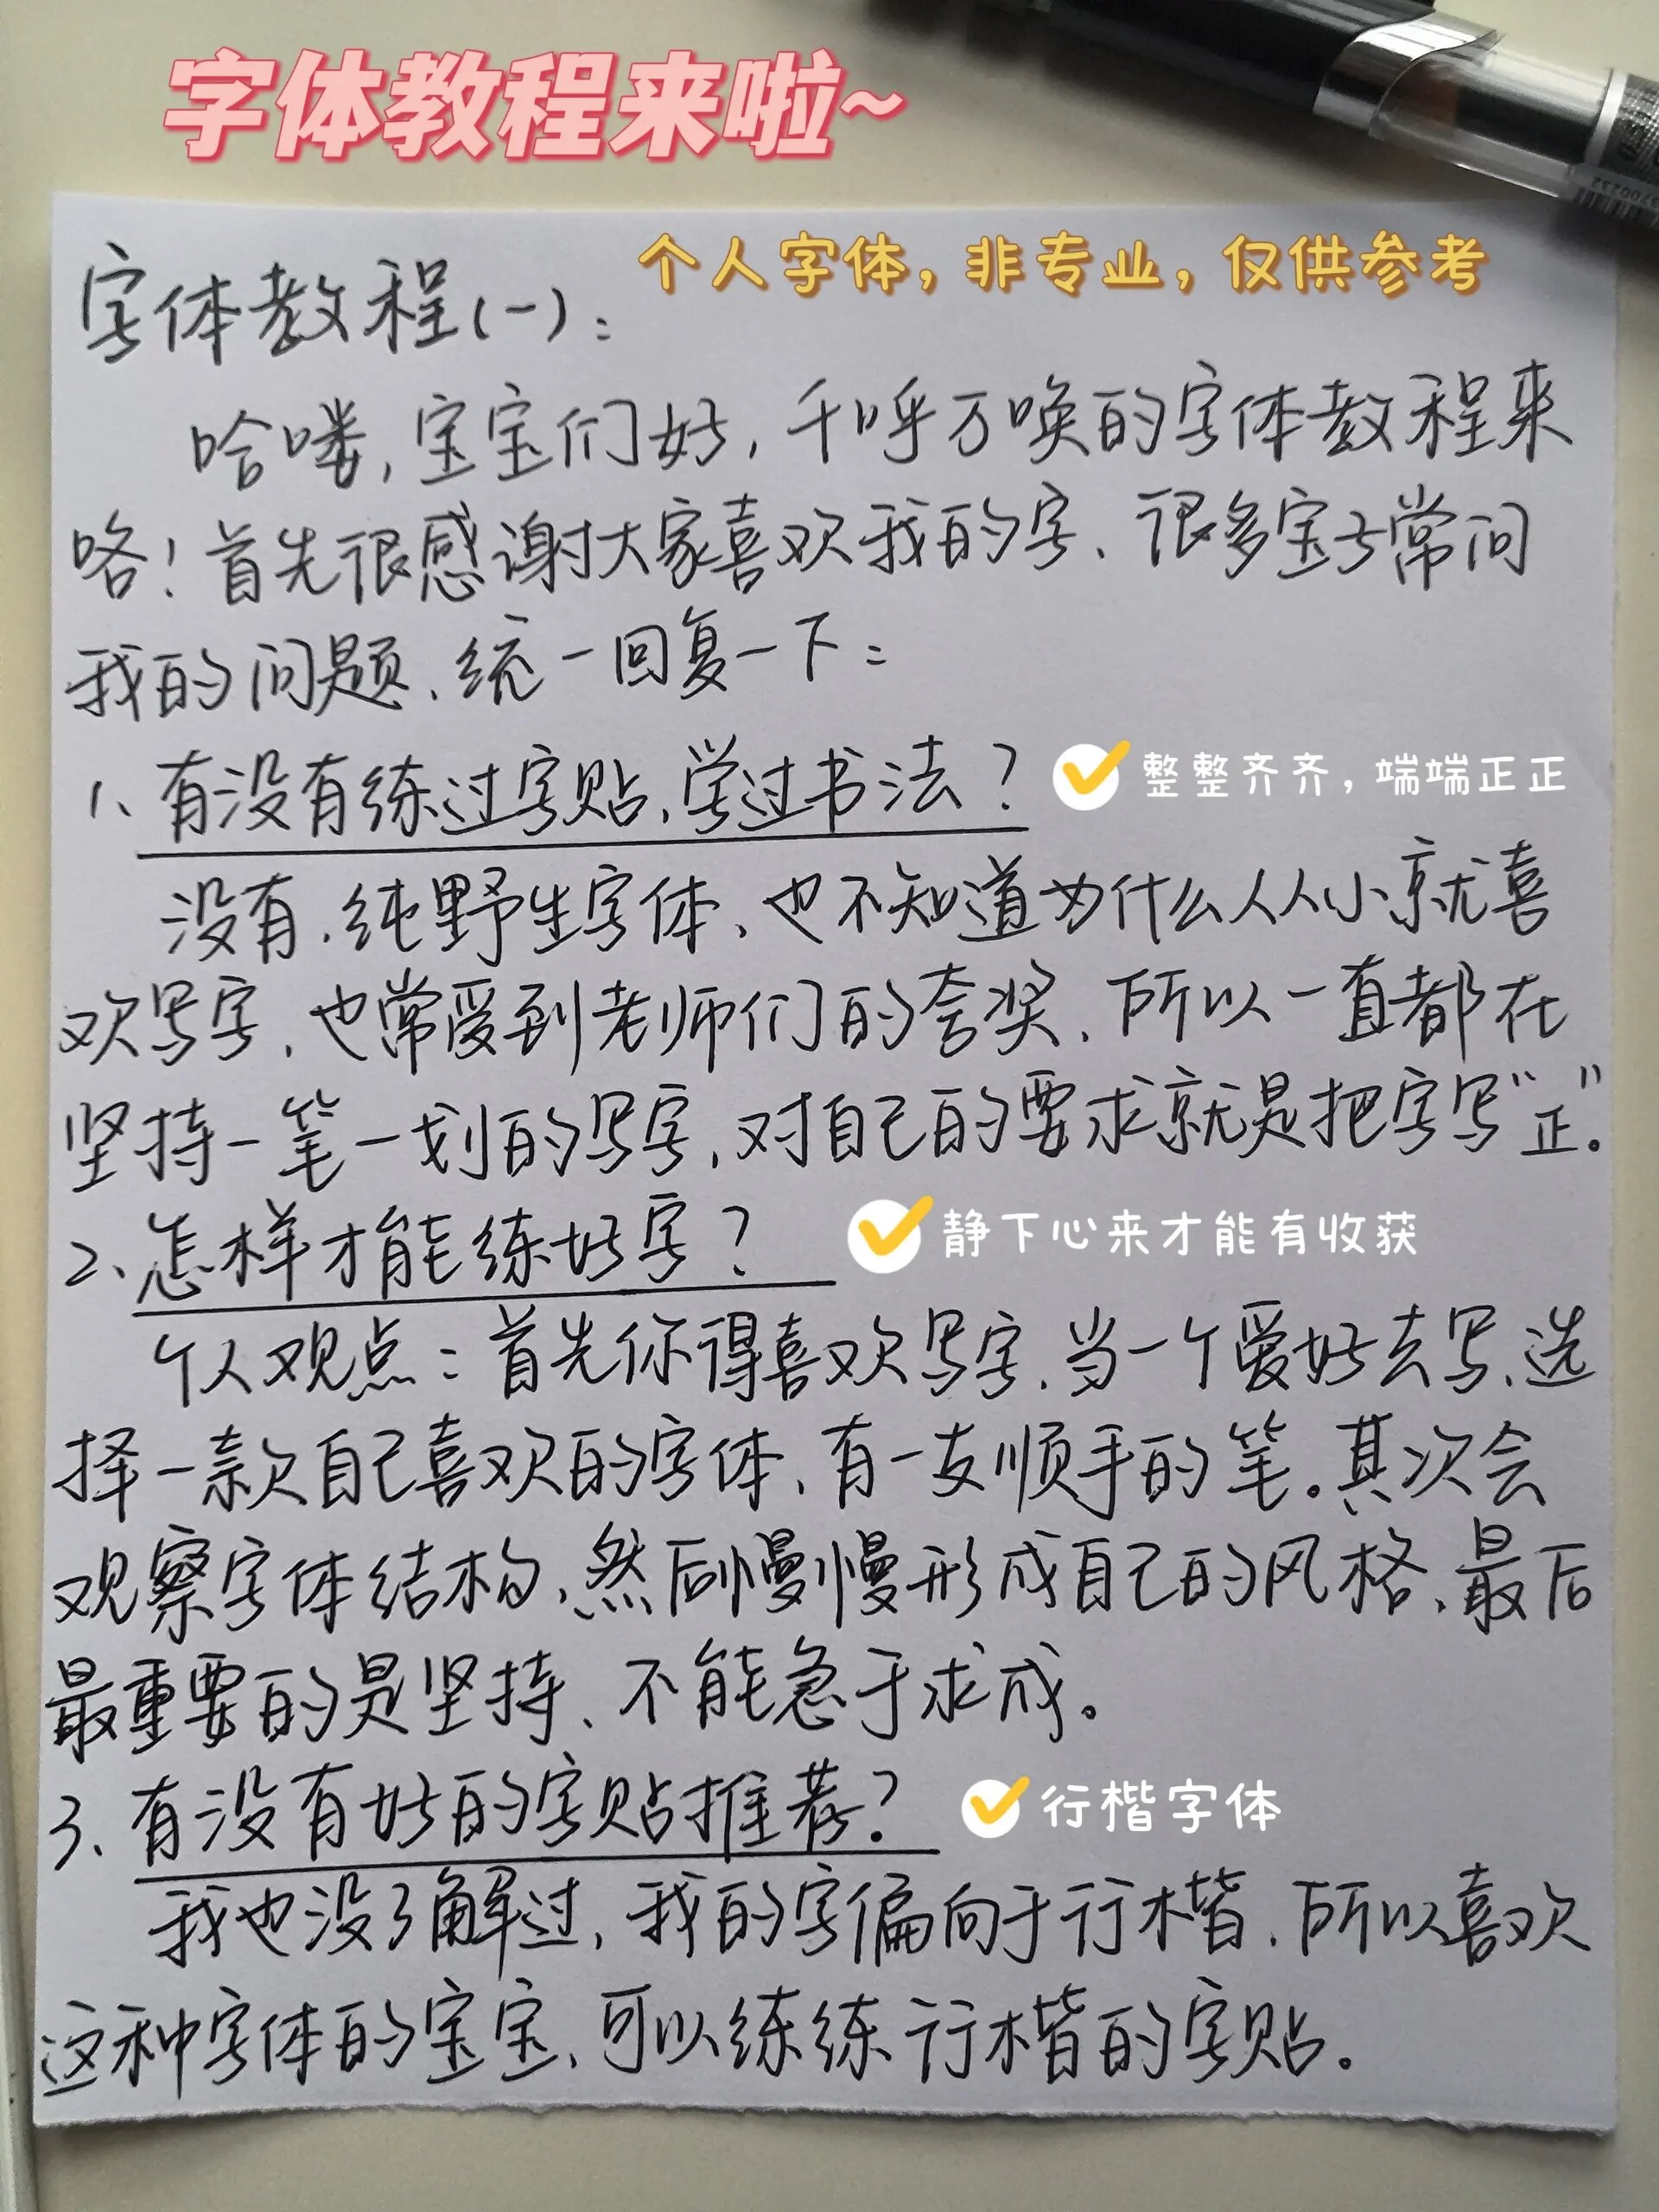 字体教程来啦~
个人字体，非专业，仅供参考
字体教程(一)：
哈喽，宝宝们好，千呼万唤的字体教程来
咯！首先很感谢大家喜欢我的字、很多宝子常问
我的问题、统一回复一下：
1、有没有练过字贴、学过书法？
整整齐齐，端端正正
没有、纯野生字体、也不知道为什么从小就喜
欢写字、也常受到老师们的夸奖、所以一直都在
坚持一笔一划的写字，对自己的要求就是把字写“正”。
2、怎样才能练好字？
静下心来才能有收获
个人观点：首先你得喜欢写字、当一个爱好去写、选
择一款自己喜欢的字体、有一支顺手的笔。其次会
观察字体结构、然后慢慢形成自己的风格、最后
最重要的是坚持、不能急于求成。
3、有没有好的字贴推荐？
行楷字体
我也没了解过，我的字偏向于行楷、所以喜欢
这种字体的宝宝、可以练练行楷的字贴。